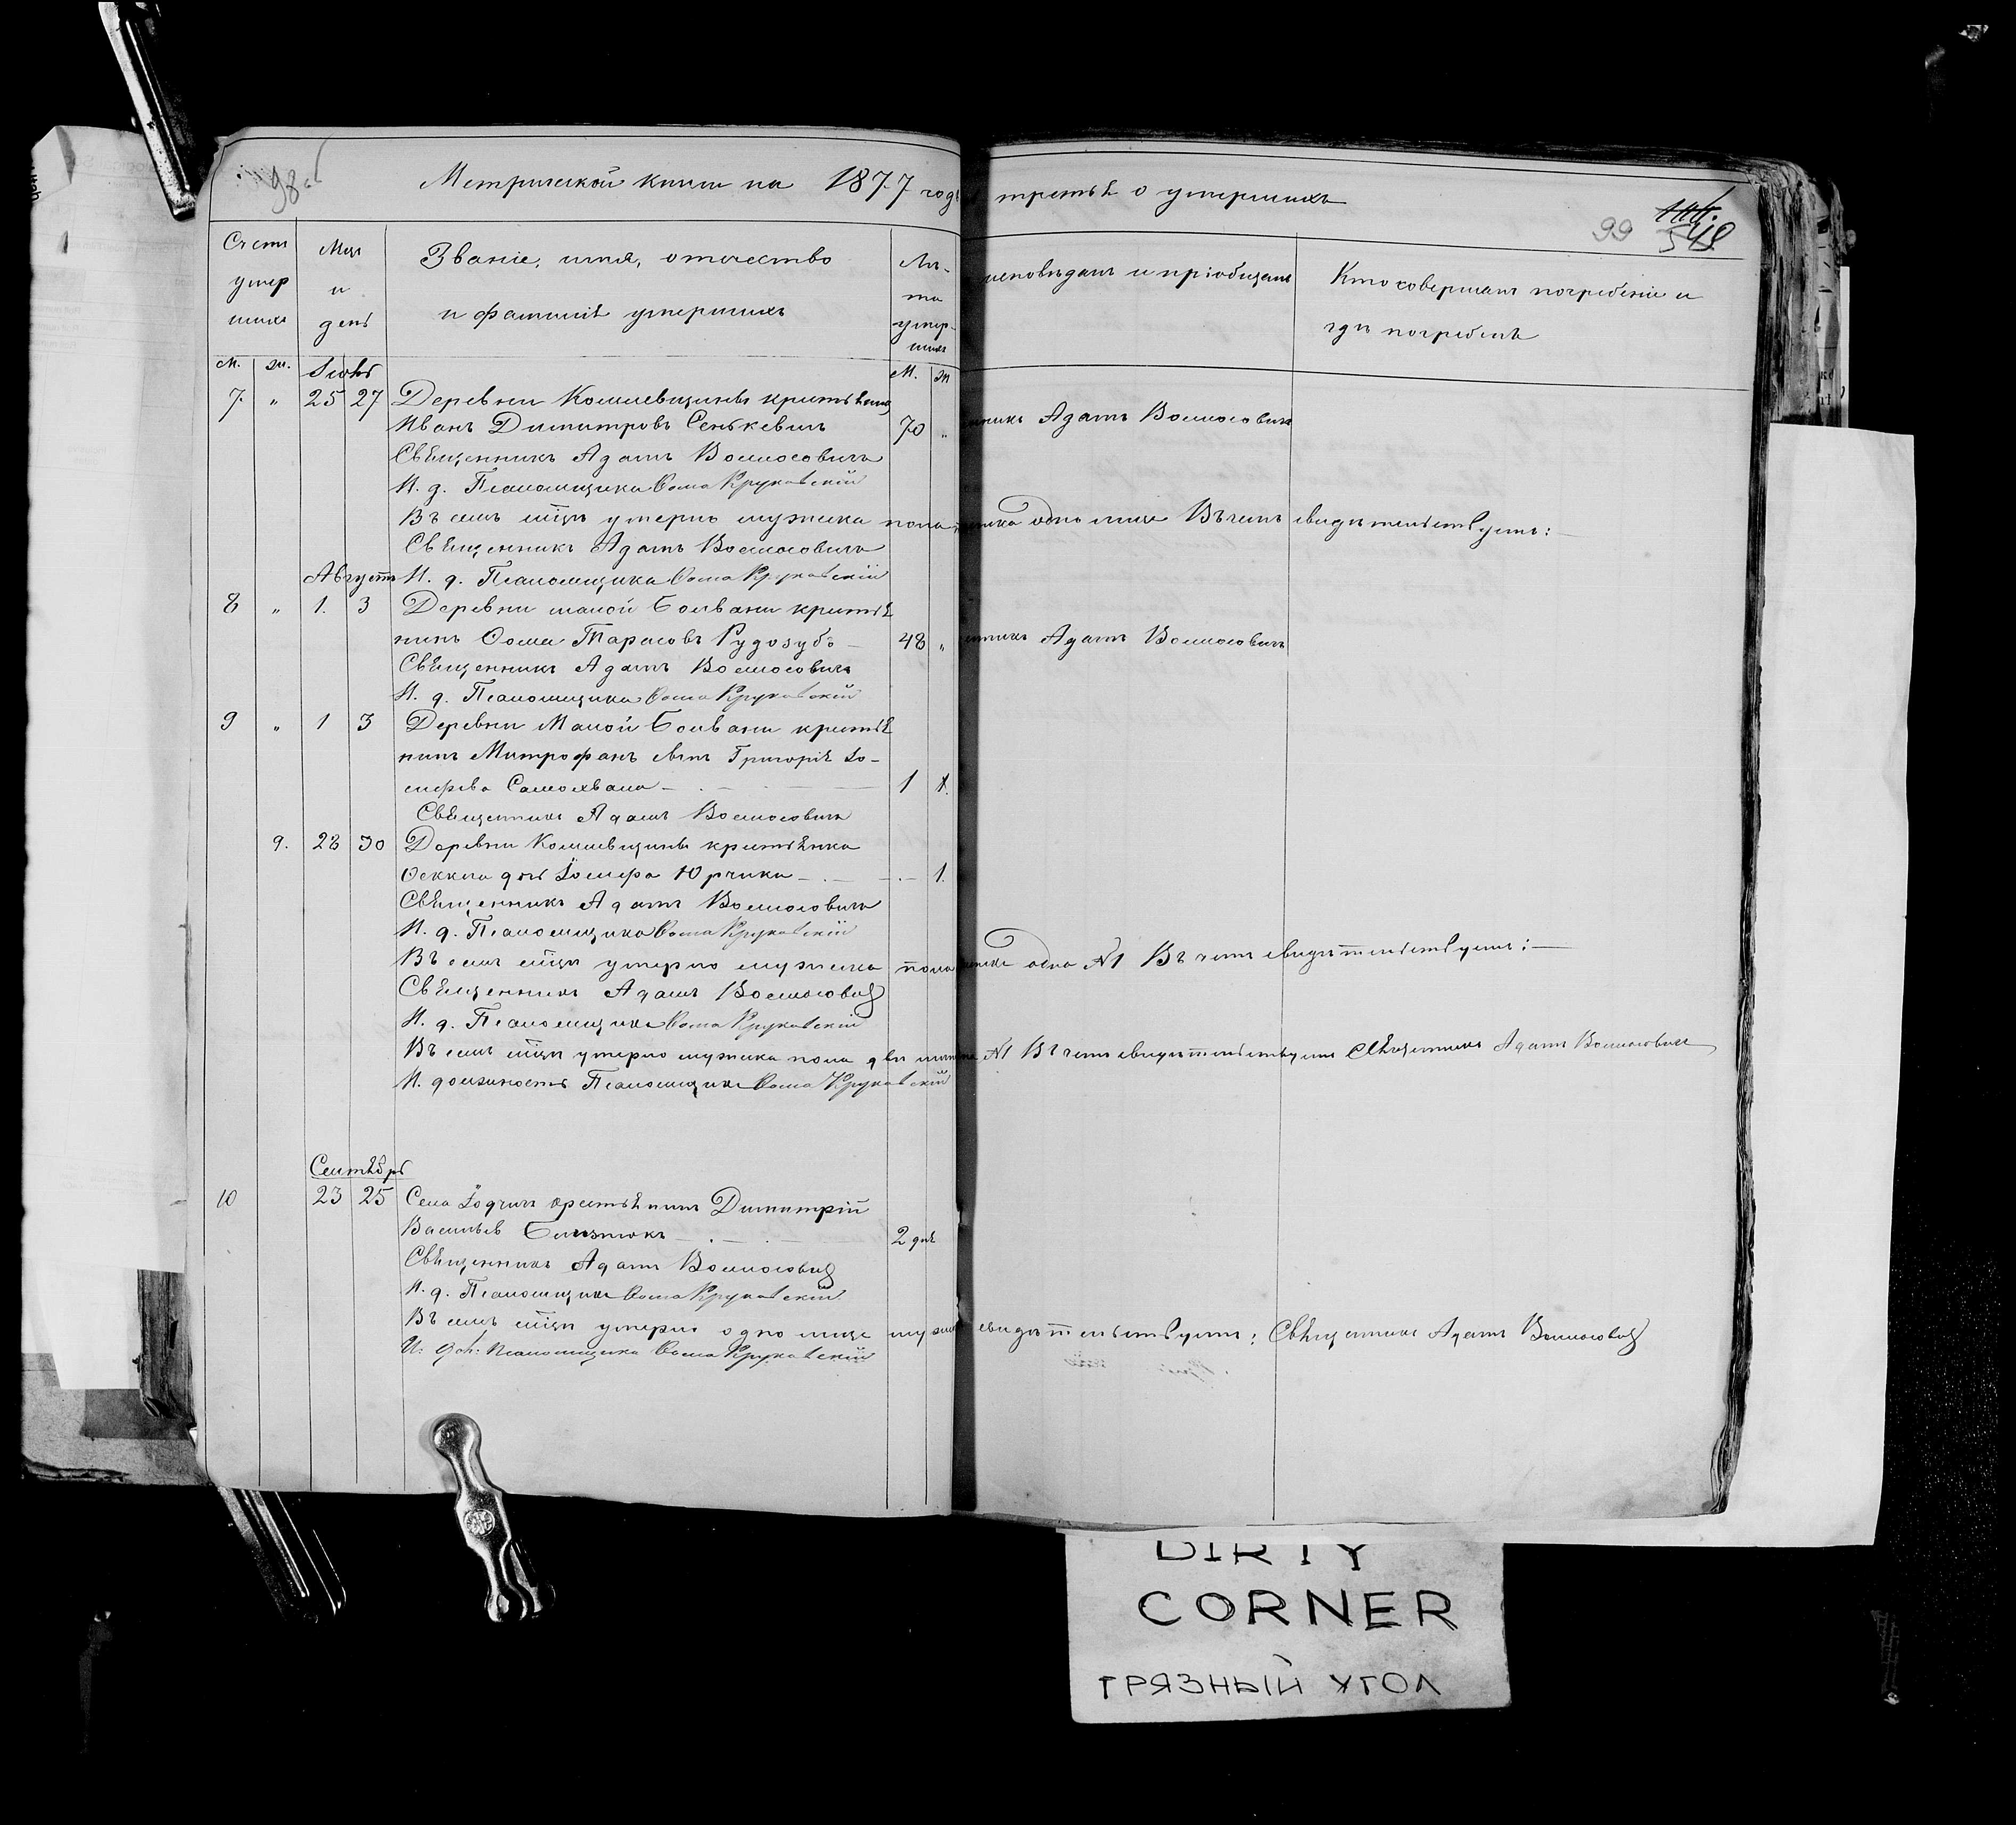 98
Метрической книги на 1877 годъ
третьѣ о умершихъ
99
548
Счетъ умер шихъ
Мцъ и день
Званіе, имя, отчество
и фамиліѣ умершихъ
Лѣ-
та
умер-
шихъ
исповѣдалъ и пріобщалъ
Кто совершалъ погребеніе и
гдѣ погребенъ
М. ж. Іюль М. ж
7 " 25 27 Деревни Кошевщины крестьянинъ
Иванъ Димитровъ Сенькевичъ 70 "
никъ Адамъ Волосовичъ
Священникъ Адамъ Волосовичъ
И. д. Псаломщика Ѳома Круковскій
Въ семъ мцѣ умерло мужска пола
одно лице Въ чемъ свидѣтельствуемъ:
Священникъ Адамъ Волосовичъ
Августъ И. д. Псаломщика Ѳома Круковскій
8 " 1. 3 Деревни малой Болвани крестья
нинъ Ѳома Тарасовъ Рудозубъ 48 "
никъ Адамъ Волосовичъ
Священникъ Адамъ Волосовичъ
И. д. Псаломщика Ѳома Круковскій
9 " 1 3 Деревни Малой Болвани крестья
нинъ Митрофанъ сынъ Григорія Іо-
сифова Самохвала 1
Священникъ Адамъ Волосовичъ
9. 28 30 Деревни Кошевщины крестьянка
Ѳеккла дочь Іосифа Юрчика 1.
Священникъ Адамъ Волосовичъ
И. д. Псаломщика Ѳома Круковскій
Въ семъ мцѣ умерло мужска пола
одна №1 Въ чемъ свидѣтельствуемъ:
Священникъ Адамъ Волосовичъ
И. д. Псаломщика Ѳома Круковскій
Въ семъ мцѣ умерло мужска пола два
№1 Въ чемъ свидѣтельствуемъ Священникъ Адамъ Волосовичъ
И. должность Псаломщика Ѳома Круковскій
Сентябрь
10 23 25 Села Іодчичъ крестьянинъ Димитрій
Васильевъ Близнюкъ 2 дня
Священникъ Адамъ Волосовичъ
И. д. Псаломщика Ѳома Круковскій
Въ семъ мцѣ умерло одно лице
свидѣтельствуемъ: Священникъ Адамъ Волосовичъ
И: дол: Псаломщика Ѳома Круковскій
DIRTY
CORNER
ГРЯЗНЫЙ УГОЛ